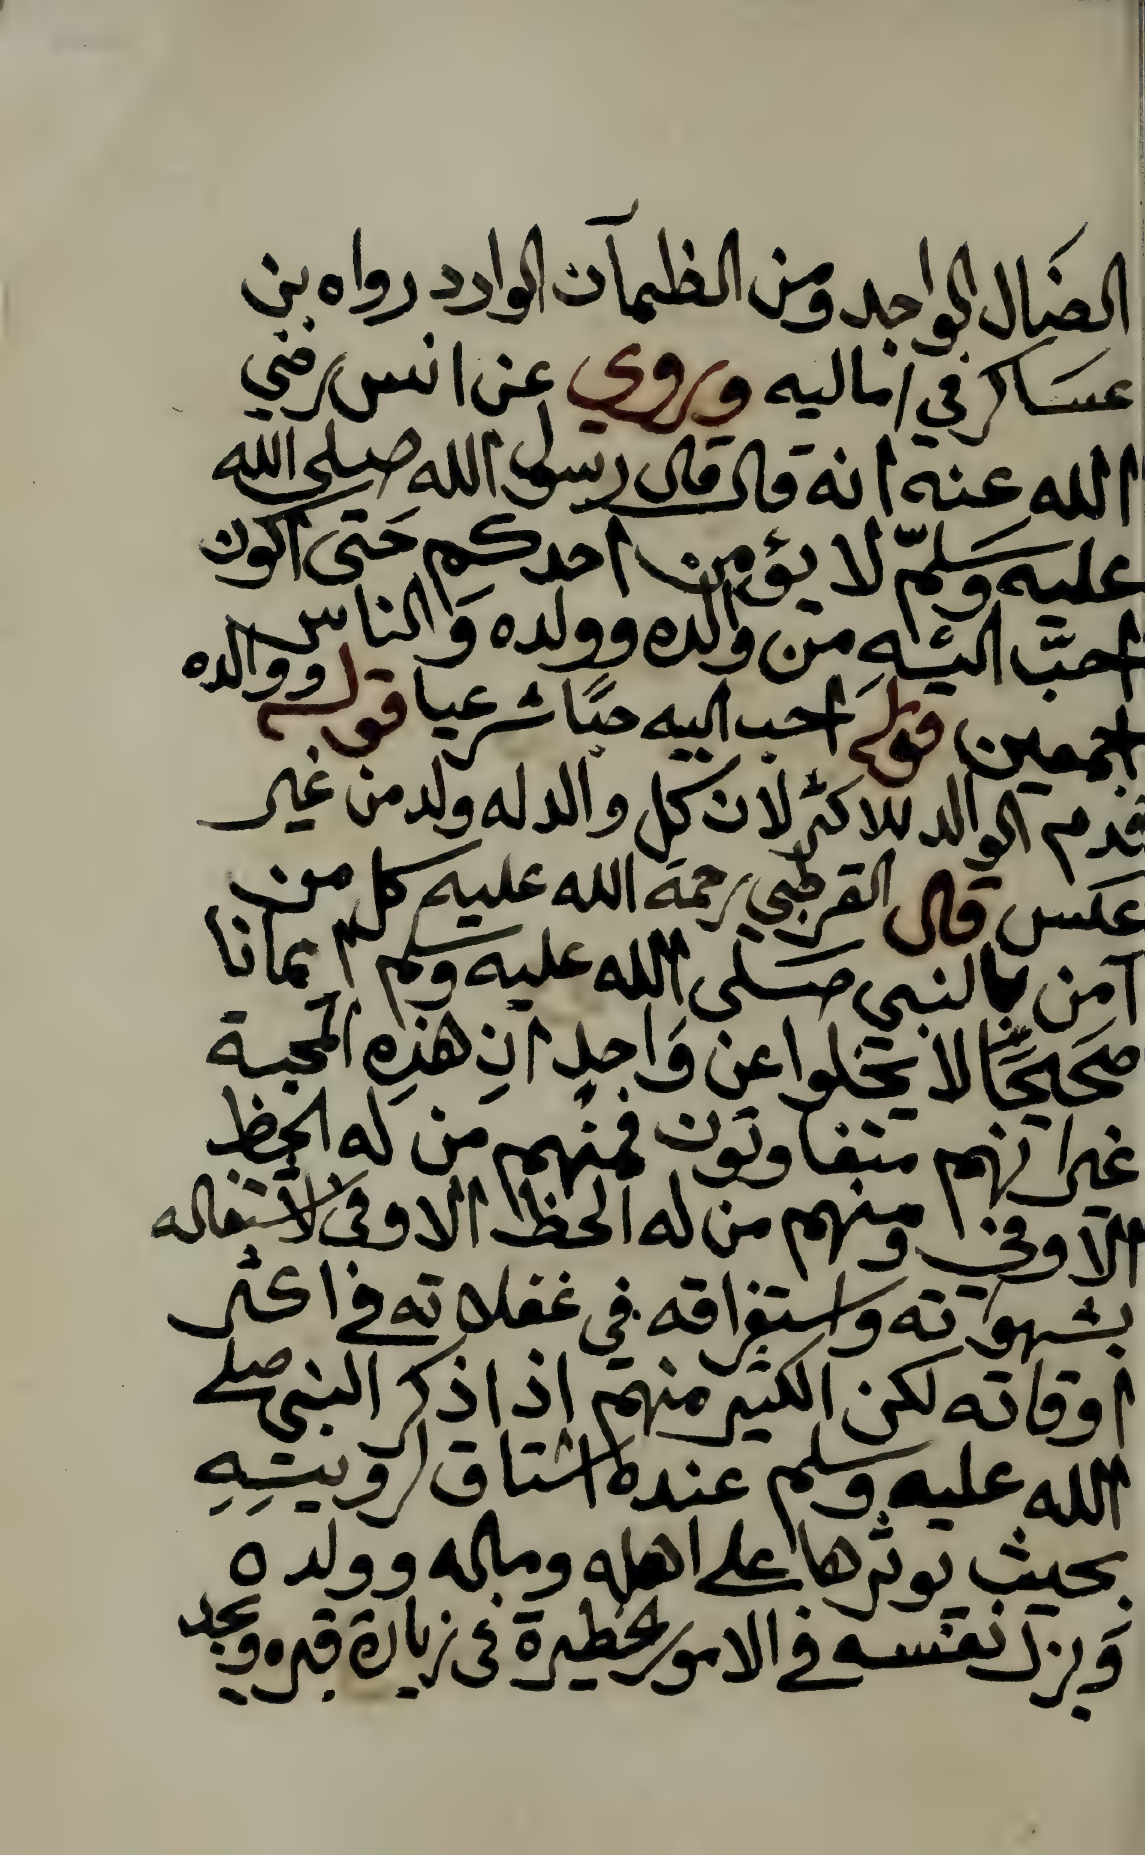 الضال الواجد ومن الظمآن الوارد رواه بن
عساكر في اماليه وروي عن انس رضي
الله عنه انه قال قال رسول الله صلى الله
عليه وسلم لا يؤمن احدكم حتى اكون
احبّ اليه من والده وولده والناس
اجمعين قوله احب اليه حبًا شرعيا قوله ووالده
قدم الوالد للاكثر لان كل والد له ولد من غير
عكس قال القرطبي رحمة الله عليه كل من
آمن بالنبي صلى الله عليه وسلم ايمانا
صحيحًا لا يخلوا عن واحد ان هذه المحبة
غير انهم متفاوتون فمنهم من له الحظ
الاوفى ومنهم من له الحظ الاوفى لاشتغاله
بشهواته واستغراقه في غفلاته في اكثر
اوقاته لكن الكثير منهم اذا ذكر النبي صلى
الله عليه وسلم عنده اشتاق لرويته
بحيث يوثرها على اهله وماله وولده
ويزل نفسه في الامور الخطيرة في زيارة قبره ويجد